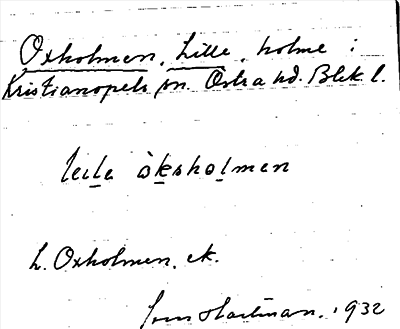 Oxholmen, Lille, holme i
Kristianopels sn. Östra hd. Blek l.
àksholmen
L. Oxholmen, ek.
Hartman, 1932